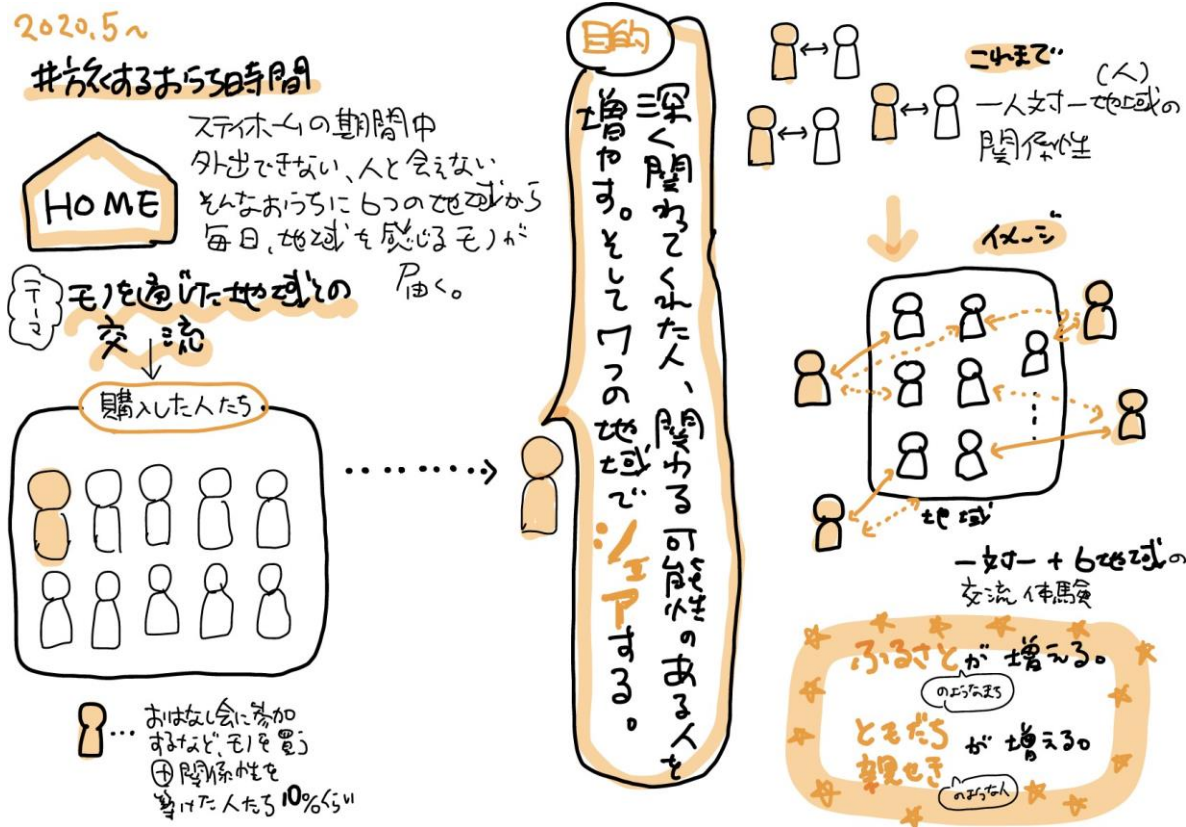 2020.5〜
#旅するおうち時間
HOME
ステイホームの期間中
外出できない、人と会えない
そんなおうちに6つの地域から
毎日、地域を感じるモノが
届く。
テーマ
モノを通じた地域との
交流
購入した人たち
おはなし会に参加
するなど、モノを買う
⊕関係性を
築けた人たち10%くらい
目的
深く関わってくれた人、関わる可能性のある人を
増やす。そして7つの地域でシェアする。
これまで
(人)
一人対一地域の
関係性
イメージ
地域
一対一+6地域の
交流体験
ふるさとが増える。
のようなまち
ともだち
親せき
が増える。
のような人